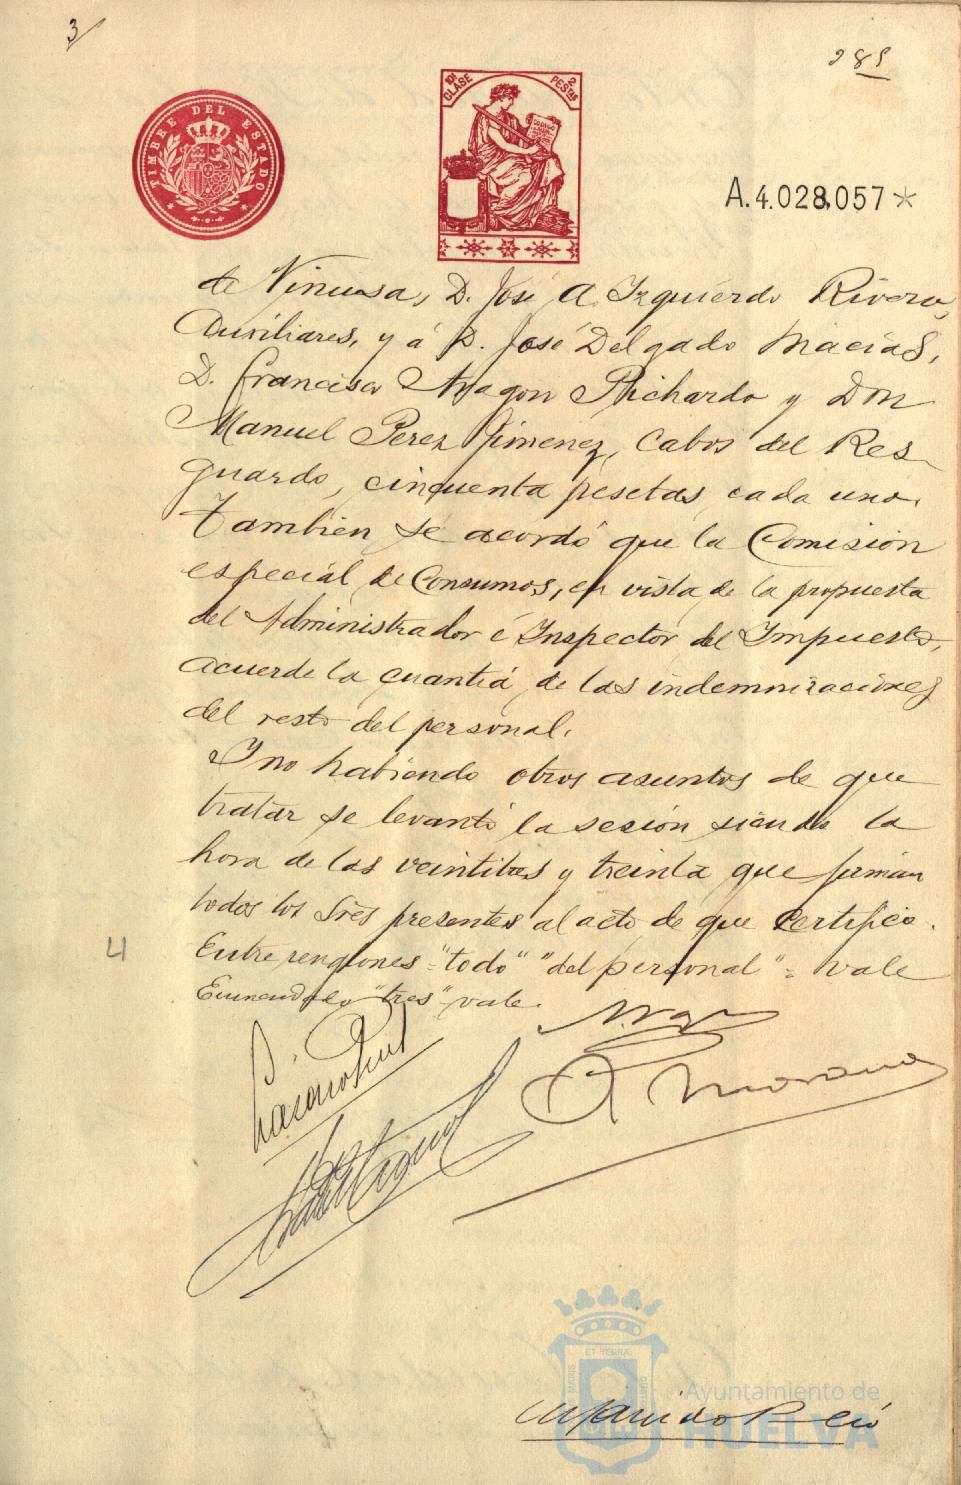 3
285
TIMBRE DEL ESTADO
10ª CLASE
2 PESETAS
A.4.028,057*
de Vinuesa, D. José A. Izquierdo Rivera,
Auxiliares, y á D. José Delgado Macias,
D. Francisco Aragon Pichardo y Don
Manuel Perez Jimenez, Cabos del Res-
guardo, cinquenta pesetas cada uno.
Tambien se acordó que la Comisión
especial de Consumos, en vista de la propuesta
del Administrador é Inspector del Impuesto,
acuerde la cuantia de las indemnizaciones
del resto del personal.
Y no habiendo otros asuntos de que
tratar se levantó la sesión siendo la
hora de las veintitres y treinta que firman
todos los Sres presentes al acto de que certifico.
Entre renglones "todo" "del personal" = vale
Enmendado "tres" vale.
4
ET TERRÆ
MARIS
Ayuntamiento de
HUELVA